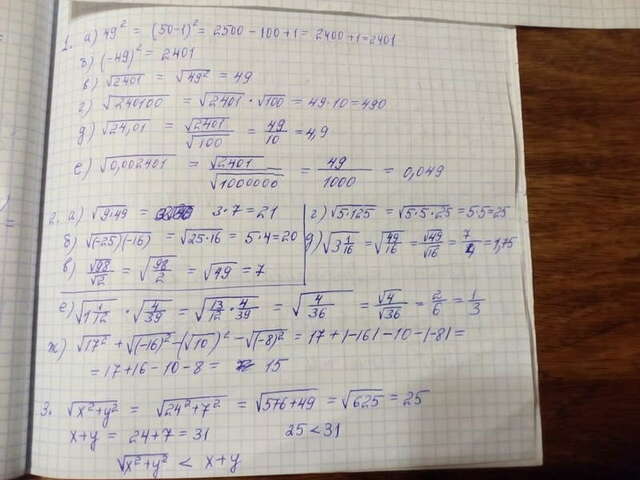 1. а) 49² = (50-1)² = 2500 - 100 + 1 = 2400 + 1 = 2401
б) (-49)² = 2401
в) √2401 = √49² = 49
г) √240100 = √2401 · √100 = 49 · 10 = 490
д) √24,01 = √2401/√100 = 49/10 = 4,9
е) √0,002401 = √2401/√1000000 = 49/1000 = 0,049
2. а) √9·49 = 3·7 = 21
б) √(-25)(-16) = √25·16 = 5·4 = 20
в) √98/√2 = √98/2 = √49 = 7
г) √5·125 = √5·5·25 = 5·5 = 25
д) √3 1/16 = √49/16 = √49/√16 = 7/4 = 1,75
е) √1 1/12 · √4/39 = √13/12 · 4/39 = √4/36 = √4/√36 = 2/6 = 1/3
ж) √17² + √(-16)² - (√10)² - √(-8)² = 17 + |-16| - 10 - |-8| =
= 17 + 16 - 10 - 8 = 15
3. √x²+y² = √24²+7² = √576+49 = √625 = 25
x+y = 24+7 = 31 25 < 31
√x²+y² < x+y